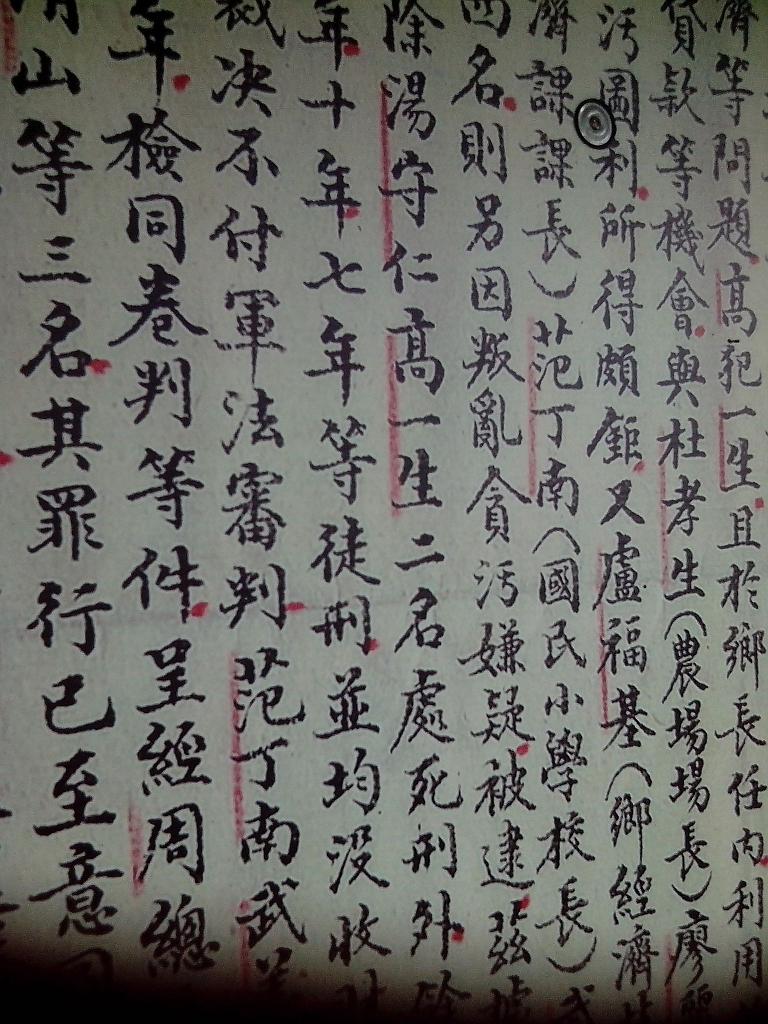 濟等問題高犯一生且於鄉長任內利用
貸款等機會與杜孝生(農場場長)廖
污圖利所得頗鉅又盧福基(鄉經濟
濟課課長)范丁南(國民小學校長)武
四名則另因叛亂貪污嫌疑被逮茲據
除湯守仁高一生二名處死刑外餘
年十年七年等徒刑並均沒收財
裁決不付軍法審判范丁南武義
年檢同卷判等件呈經周總
山等三名其罪行已至意圖